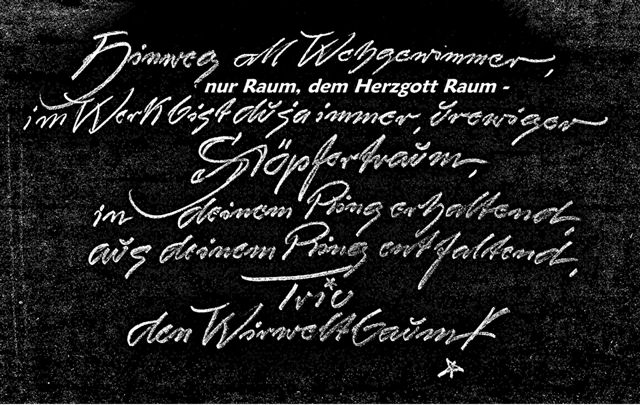 Hinweg all Wehgewimmer,
nur Raum, dem Herzgott Raum -
im Werk bist du ja immer, urewiger
Schöpfertraum,
in deinem Ring erhaltend,
aus deinem Ring entfaltend,
Triu
den Wirweltbaum